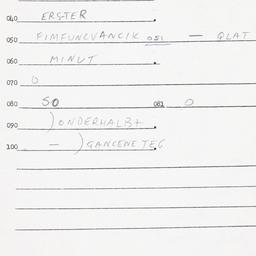 040 ERSTER
050 FIMFUNCVANCIK 051 — QLAT
060 MINUT
070 O
080 SO 081 O
090 ) ONDERHALBT
100 — ) GANCENE TEG